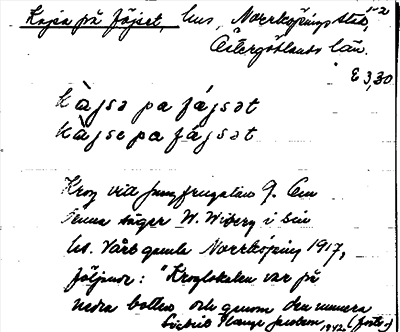 Kajsa på Föjset, hus, Norrköpings stad, 1-2
Östergötlands län.
E 3,30
kàjsə pa fájsət
kàjse pa fájsət
Krog vid Jungfrugatan 9. Om
denna säger W. Wiberg i sin
bs. Vårt gamla Norrköping 1917,
följande: "Kroglokalen var på
nedra botten och genom den numera
1942. (forts.)